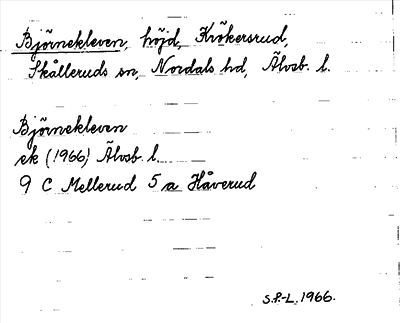 Björnekleven, höjd, Krökersrud,
Skålleruds sn, Nordals hd, Älvsb. l.
Björnekleven
ek (1966) Älvsb. l.
9 C Mellerud 5 a Håverud
S.P.-L. 1966.